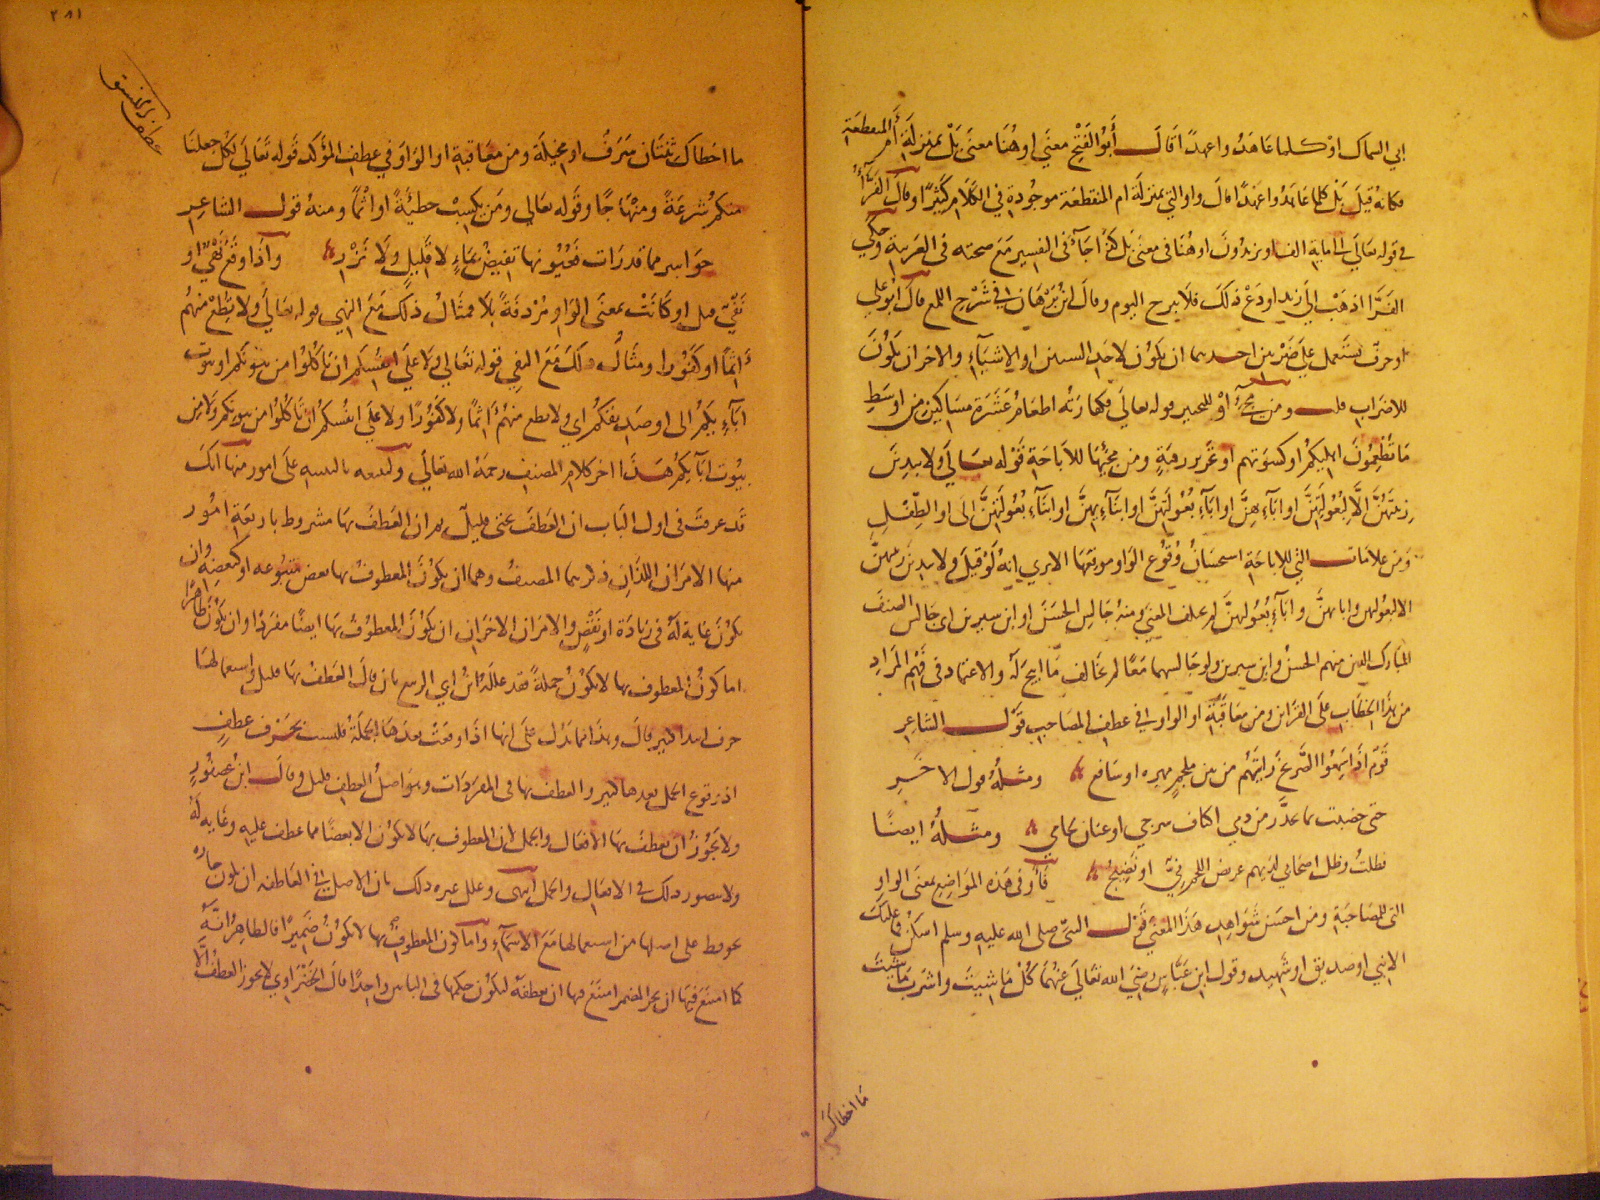 ابي السماك اوْ كلما عاهدوا عهدا قال أبو الفتح معنى او هنا معنى بل بمنزلة أم المنقطعة
فكانه قيل بل كلما عاهدوا عهدا قال واو التي بمنزلة ام المنقطعة موجودة في الكلام كثيرا وقال الفراء
في قوله تعالى الى ماية الف او يزيدون او هنا في معنى بل كذا جاء في التفسير مع صحته في العربية وحكي
الفرا اذهب الى زيد او دع ذلك فلا تبرح اليوم وقال ابن برهان في شرح اللمع قال ابو علي
او حرف يستعمل على ضربين احدهما ان يكون لاحد الشيين او الاشياء والاخر ان يكون
للاضراب قلت ومن مجيء او للتخيير قوله تعالى فكفارته اطعام عشرة مساكين من اوسط
ما تطعمون اهليكم او كسوتهم او تحرير رقبة ومن مجيئها للاباحة قوله تعالى ولا يبدين
زينتهن الا لبعولتهن او آبائهن او آباء بعولتهن او ابنائهن او ابناء بعولتهن الى او الطفل
ومن علامات التي للاباحة استحسان وقوع الواو موقعها الا ترى انه لو قيل ولا يبدين زينتهن
الا لبعولتهن وابائهن وآباء بعولتهن لم يختلف المعنى ومنه جالس الحسن او ابن سيرين اي جالس الصنف
المبارك الذين منهم الحسن وابن سيرين ولو جالسهما معا لم يخالف ما ابيح له والاعتماد في فهم المراد
من هذا الخطاب على القراين ومن معاقبة او الواو في عطف المصاحب قول الشاعر
قوم اذا سمعوا الصريخ رايتهم من بين ملجم مهره او سافع ومثله قول الاخر
حتى خضبت بما تحدر من دمي اكناف سرجي او عنان لجامي ومثله ايضا
فظلت وظل اصحابي لديهم غريض اللحم نيّ او نضيج فاو في هذه المواضع بمعنى الواو
التي للمصاحبة ومن احسن شواهد هذا المعنى قول النبي صلى الله عليه وسلم اسكن فما عليك
الا نبي او صديق او شهيد وقول ابن عباس رضي الله تعالى عنهما كل ما شيت واشرب ما شيت
ما اخطاك
٢٨١
عطف النسق
ما اخطاك ثنتان سرف او مخيلة ومن معاقبة او الواو في عطف المؤكد قوله تعالى لكل جعلنا
منكم شرعة ومنهاجا وقوله تعالى ومن يكسب خطيئة او اثما ومنه قول الشاعر
واذا وقع نهي او
نفي قبل او كانت بمعنى الواو مردفة بلا فمثال ذلك مع النهي قوله تعالى ولا تطع منهم
آثما او كفورا ومثال ذلك مع النفي قوله تعالى ولا على انفسكم ان تاكلوا من بيوتكم او بيوت
آبائكم الى او صديقكم اي ولا تطع منهم آثما ولا كفورا ولا على انفسكم ان تاكلوا من بيوتكم ولا من
بيوت آبائكم هذا اخر كلام المصنف رحمه الله تعالى ولنتبعه بالتنبيه على امور منها انك
قد عرفت في اول الباب ان العطف بحتى قليل ثم ان العطف بها مشروط باربعة امور
منها الامران اللذان ذكرهما المصنف وهما ان يكون المعطوف بها بعض متبوعه او كبعضه وان
يكون غاية له في زيادة او نقص والامران الاخران ان يكون المعطوف بها ايضا مفردا وان يكون ظاهرا
اما كون المعطوف بها لا يكون جملة فقد علله ابن ابي الربيع بان قال العطف بها قليل واستعمالها
حرف ابتدا كثير قال وهذا مما يدل على انها اذا وقعت بعدها الجملة فليست بحرف عطف
اذ وقوع الجمل بعدها كثير والعطف بها في المفردات وهو اصل العطف قليل وقال ابن عصفور
ولا يجوز ان تعطف بها الافعال والجمل لان المعطوف بها لا يكون الا بعضا مما عطف عليه وغاية له
ولا يتصور ذلك في الافعال والجمل انتهى وعلل غيره ذلك بان الاصل في العاطفة ان تكون جارة
فحوفظ على اصلها من استعمالها مع الاسماء واما كون المعطوف بها لا يكون ضميرا فالظاهر انه
كما امتنع فيها ان تجر المضمر امتنع فيها ان تعطفه ليكون حكمها في البابين واحدا قال الخضراوي لا يجوز العطف الا